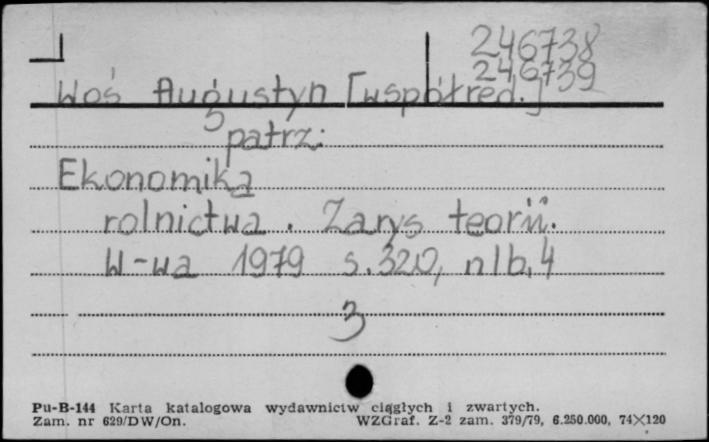 246738
246739
Woś Augustyn [współred.]
patrz:
Ekonomika
rolnictwa. Zarys teorii.
W-wa 1979 s.320, nlb.4
3
Pu-B-144 Karta katalogowa wydawnictw ciągłych i zwartych.
Zam. nr 629/DW/On. WZGraf. Z-2 zam. 379/79, 6.250.000, 74×120